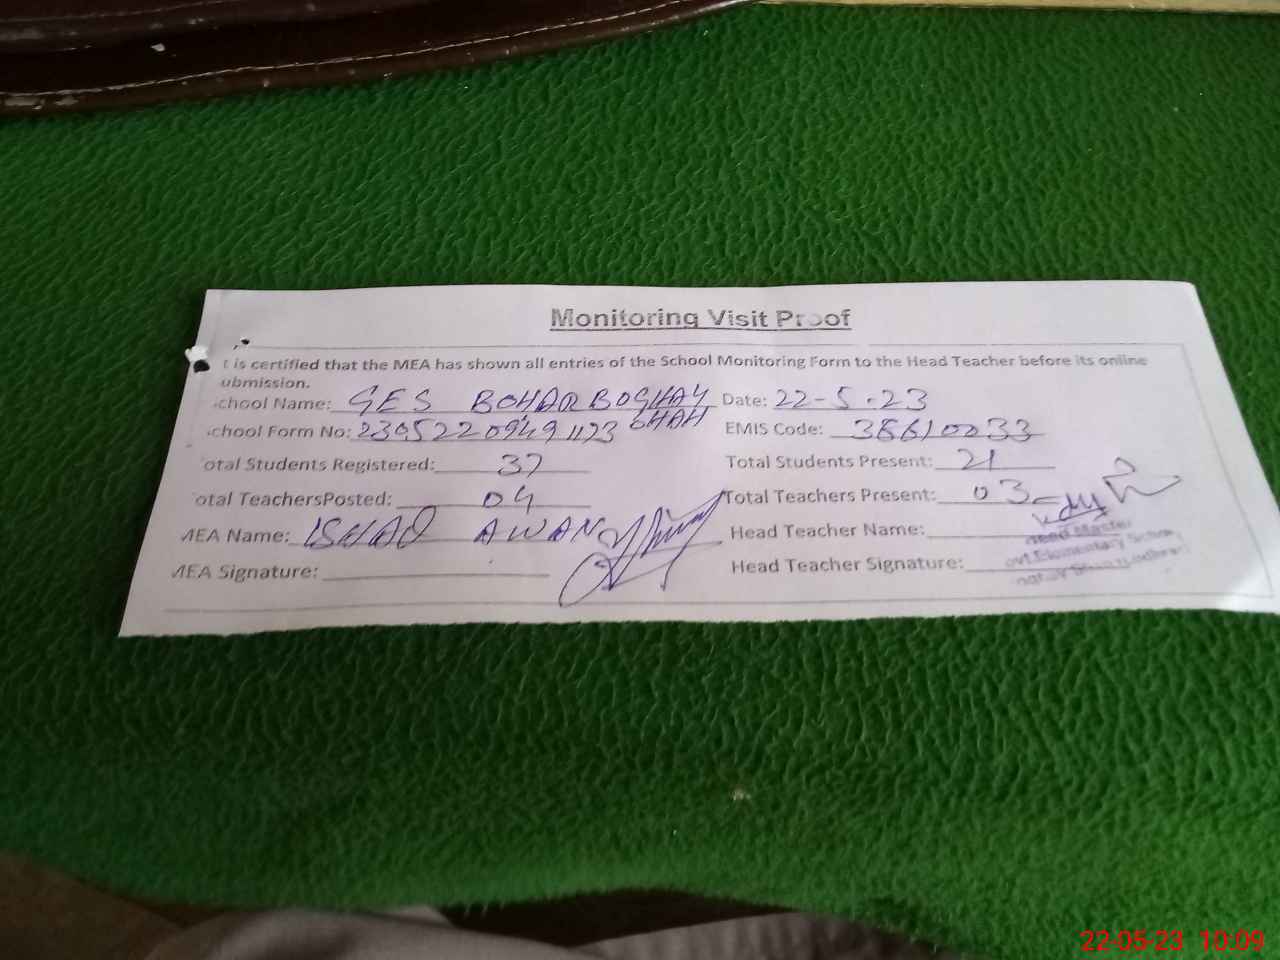 Monitoring Visit Proof
t is certified that the MEA has shown all entries of the School Monitoring Form to the Head Teacher before its online
ubmission.
chool Name: GES BOHAR BOGHAY SHAH Date: 22-5-23
chool Form No: 2305220949 1123 EMIS Code: 38610033
otal Students Registered: 37 Total Students Present: 21
otal TeachersPosted: 04 Total Teachers Present: 03
MEA Name: ISHAQ AWAN Head Teacher Name:
MEA Signature: Head Teacher Signature:
Head Master
ovt.Elementary School
22-05-23 10:09